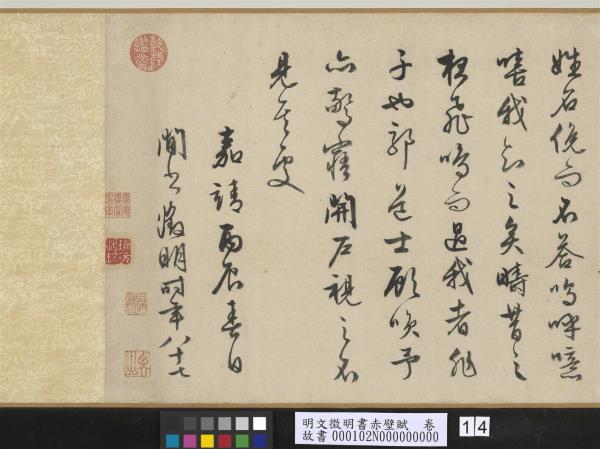 姓名俛而不答嗚呼噫
嘻我知之矣疇昔之
夜飛鳴而過我者非
子也耶道士顧咲予
亦驚寤開戶視之不
見其處
嘉靖丙辰春日
閒書徵明時年八十七
乾隆鑑賞
明文徵明書赤壁賦 卷
故書 000102N000000000
14